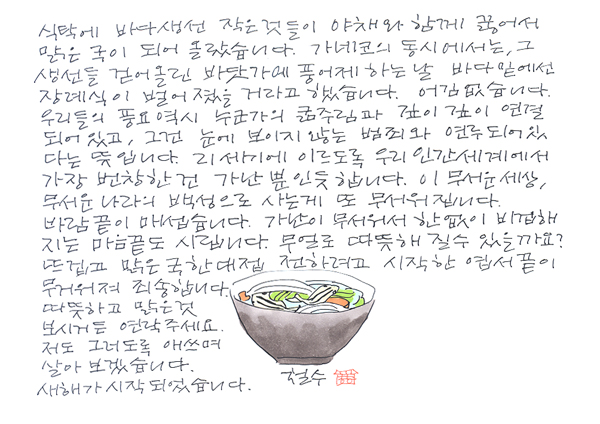 식탁에 바다생선 작은것들이 야채와 함께 끓어서
맑은 국이 되어 올랐습니다. 가네코의 동시에서는, 그
생선들 건어올린 바닷가에 풍어제 하는 날 바다 밑에선
장례식이 벌어졌을 거라고 했습니다. 어김없습니다.
우리들의 풍요 역시 누군가의 굶주림과 깊이 깊이 연결
되어 있고, 그건 눈에 보이지 않는 범죄와 연루되어 있
다는 뜻입니다. 21세기에 이르도록 우리 인간세계에서
가장 번창한 건 가난 뿐인듯 합니다. 이 무서운 세상,
무서운 나라의 백성으로 사는게 또 무서워집니다.
바람끝이 매섭습니다. 가난이 무서워서 한없이 비겁해
지는 마음끝도 시립니다. 무얼로 따뜻해 질수 있을까요?
뜨겁고 맑은 국 한 대접 전하려고 시작한 엽서 끝이
무거워져 죄송합니다.
따뜻하고 맑은것
보시거든 연락주세요.
저도 그러도록 애쓰며
살아 보겠습니다.
새해가 시작 되었습니다.
철수